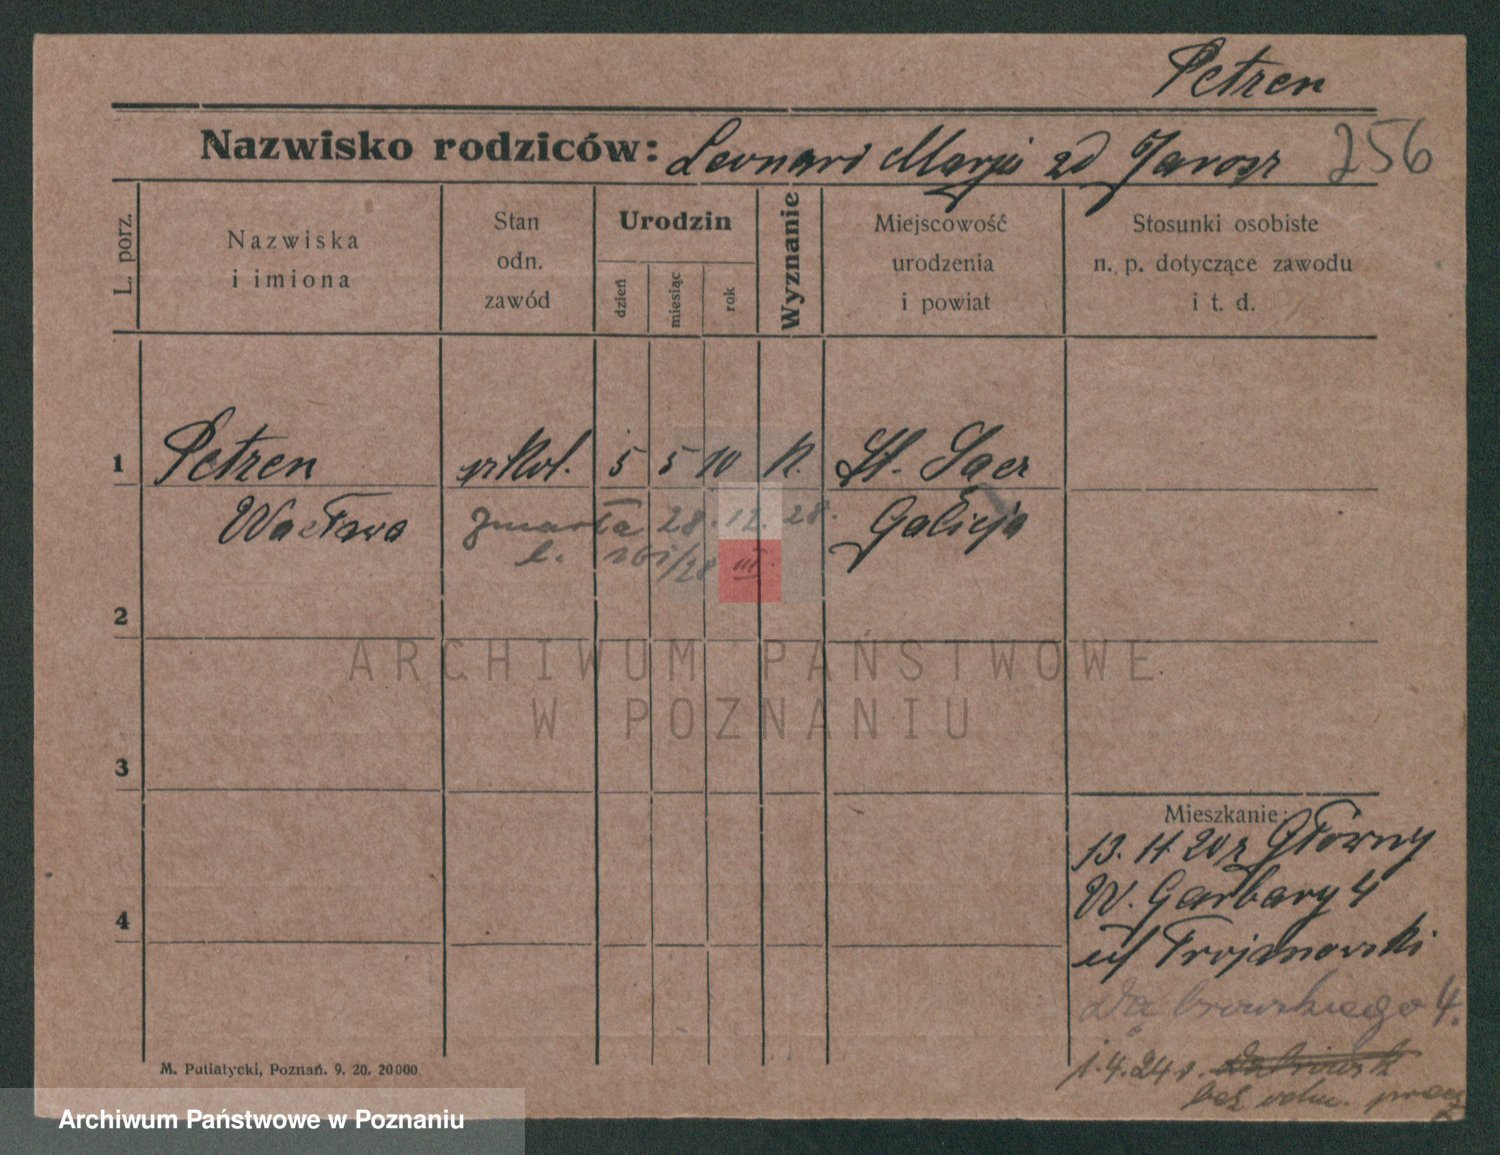 Petzen
Nazwisko rodziców: Leonard Marja zd Jarosz 256
L. porz.
Nazwiska
i imiona
Stan
odn.
zawód
Urodzin
dzień
miesiąc
rok
Wyznanie
Miejscowość
urodzenia
i powiat
Stosunki osobiste
n. p. dotyczące zawodu
i t. d.
1 Petzen 5 5 10 k. St. Sącz
Wacława zmarła 28.12.28. Galicja
2
ARCHIWUM PAŃSTWOWE
W POZNANIU
3
Mieszkanie:
13. 11 20 z Główny
4 W. Garbary 4
Trojanowski
Dąbrowskiego 4.
1.4.24 r.
bez
M. Putiatycki, Poznań. 9. 20. 20000
Archiwum Państwowe w Poznaniu